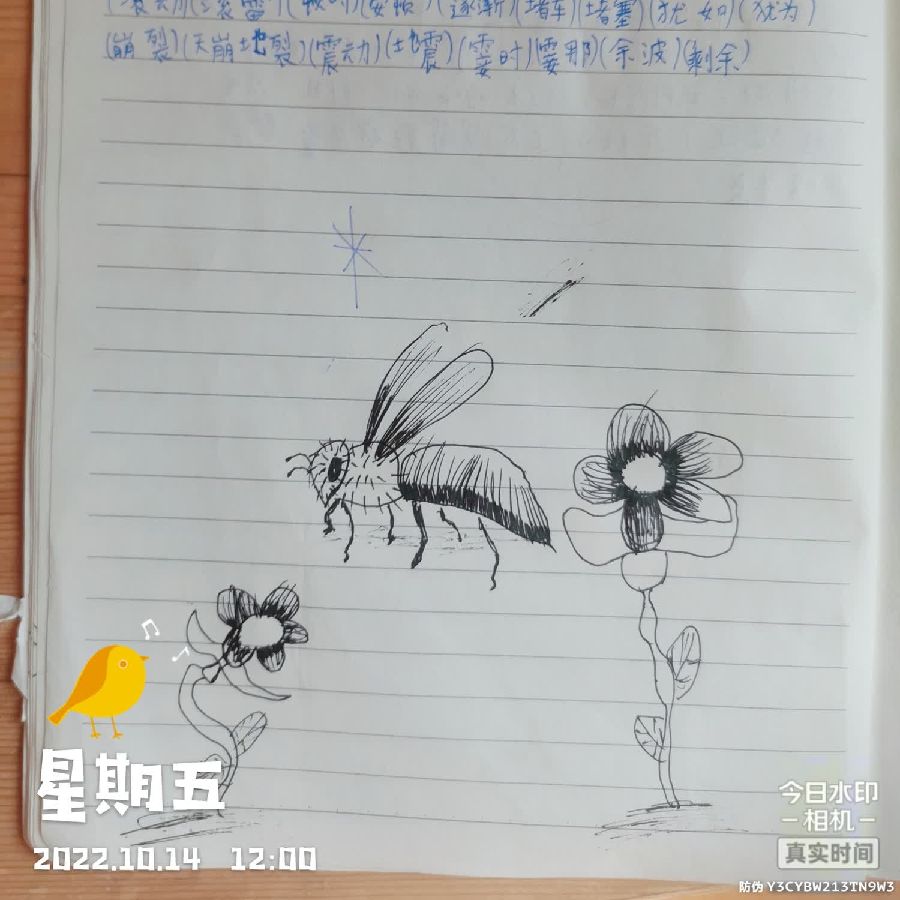 (滚动)(滚雷)(顿时)(逐渐)(堵车)(堵塞)(犹如)(犹为)
(崩裂)(天崩地裂)(震动)(地震)(霎时)(霎那)(余波)(剩余)
星期五
2022.10.14 12:00
今日水印
-相机-
真实时间
防伪 Y3CYBW213TN9W3